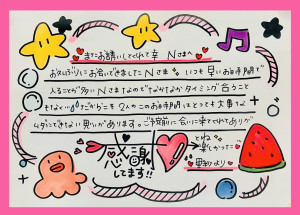 またお誘いしてくれて幸 Nさまへ
お久しぶりにお会いできました Nさま いつも早いお時間で
入ることが多い Nさまなのでなかなかタイミング合うこと
もない だからこそ 2人のこのお時間はとっても大事な
ムダにできない 思いがあります。ご予約に会いに来てくれてありが
とうね
楽しかった
感謝
してます!!
より